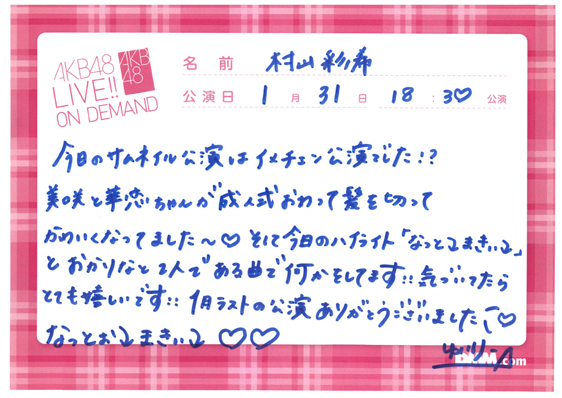 AKB48
LIVE!!
ON DEMAND
AKB
48
名 前 村山彩希
公演日 1 月 31 日 18 : 30♡ 公演
今日のサムネイル公演はイメチェン公演でした!?
美咲と華恋ちゃんが成人式おわって髪を切って
かわいくなってました〜♡ そして今日のハイライト「なっとうまきいユ」
とおかりなと2人である曲で何かをしてます!! 気づいてたら
とても嬉しいです!! 1月ラストの公演ありがとうございました♡
ゆいりー
.com